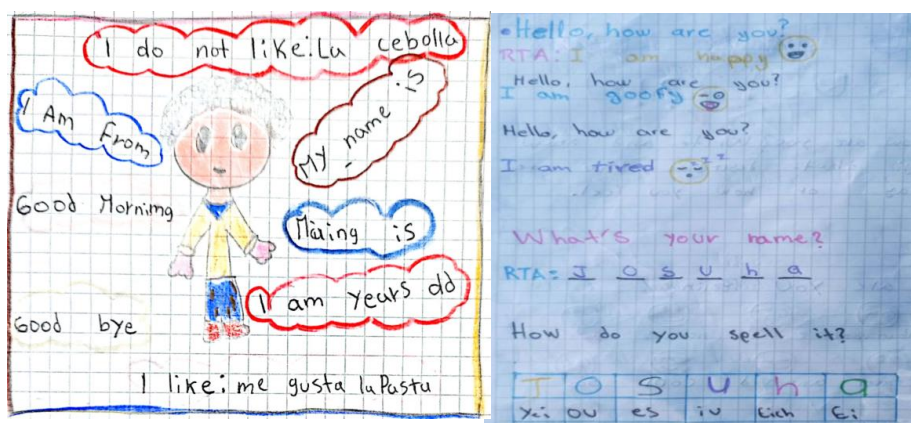 I do not like: La cebolla
I Am From
My name is
Good Mornimg
Maing is
I am years dd
Good bye
I like: me gusta la Pasta
Hello, how are you?
RTA: I am happy
Hello, how are you?
I am goofy
Hello, how are you?
I am tired zzz
What's your name?
RTA: J O S U h a
How do you spell it?
J O S U h a
Yei ou es iu Eich Ei